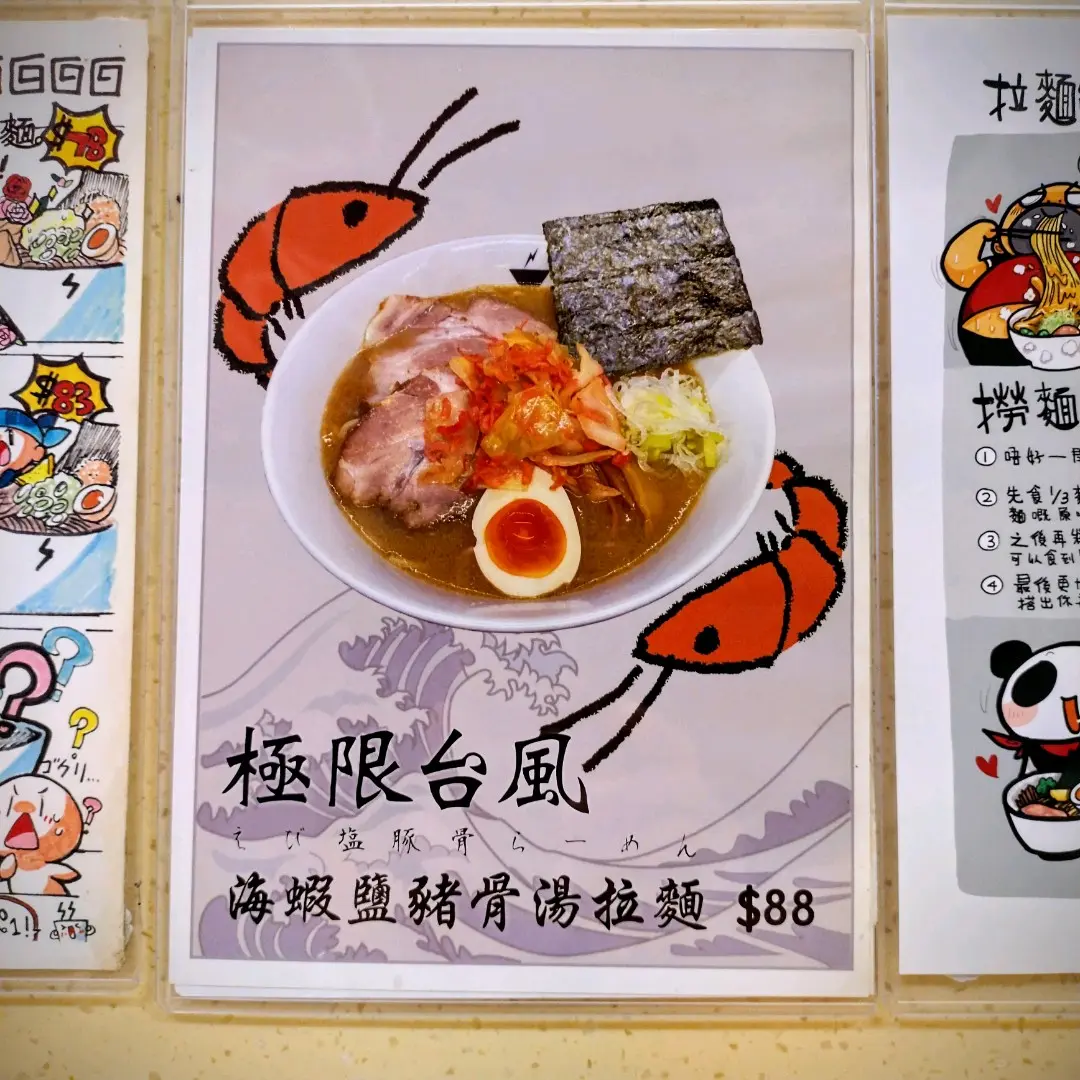 麵
$83
ゴクリ...
極限台風
えび塩豚骨らーめん
海蝦鹽豬骨湯拉麵 $88
拉麵
撈麵
① 唔好一
② 先食1/3
麵嘅原
③ 之後再
可以食到
④ 最後更
搭出休